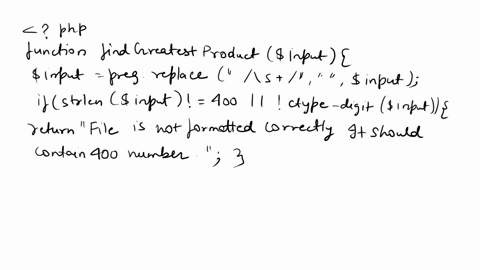 <? php
function findGreatestProduct ($input){
$input = preg. replace (" /\s + /", " ", $input);
if(strlen ($input) ! = 400 || ! ctype-digit ($input)){
return "File is not formatted correctly It should
contain 400 number . "; }